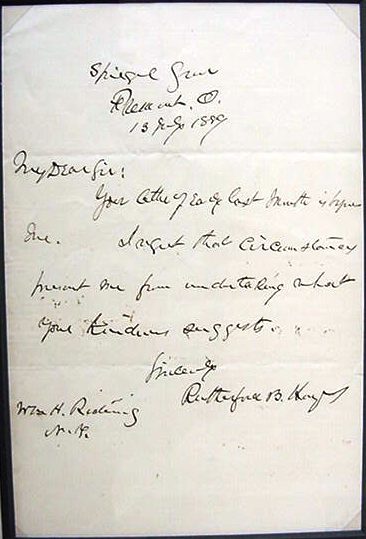 Spiegel Grove
Fremont, O.
13 July 1889
My Dear Sir:
Your letter of early last month is before
me. I regret that circumstances
prevent me from undertaking what
your kindness suggests.
Sincerely
Rutherford B. Hayes
Wm H. Rideing
N.Y.